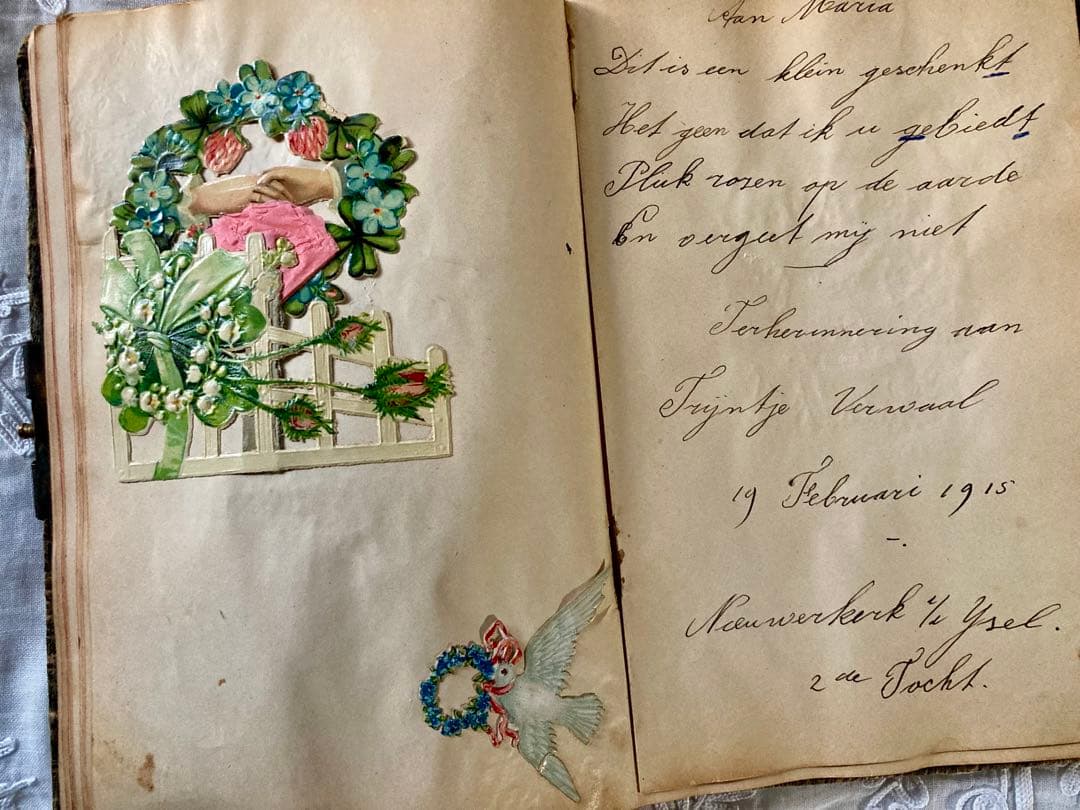 Aan Maria
Dit is een klein geschenkt
Het geen dat ik u gebiedt
Pluk rozen op de aarde
En vergeet mij niet
Terherinnering aan
Trijntje Verwaal
19 Februari 1915
Nieuwerkerk a/d Ysel.
2de Tocht.